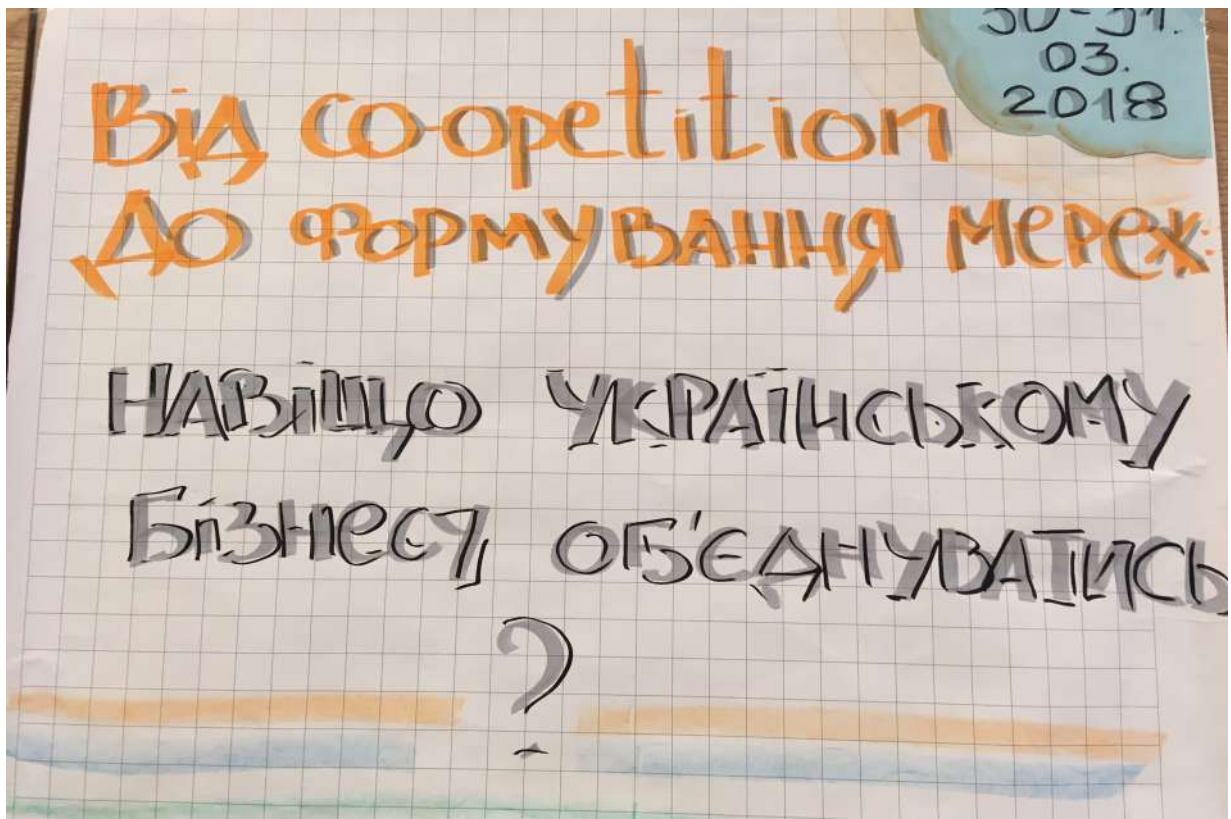 30-31.
03.
2018
Від co-opetition
до формування мереж:
Навіщо українському
бізнесу об'єднуватись
?